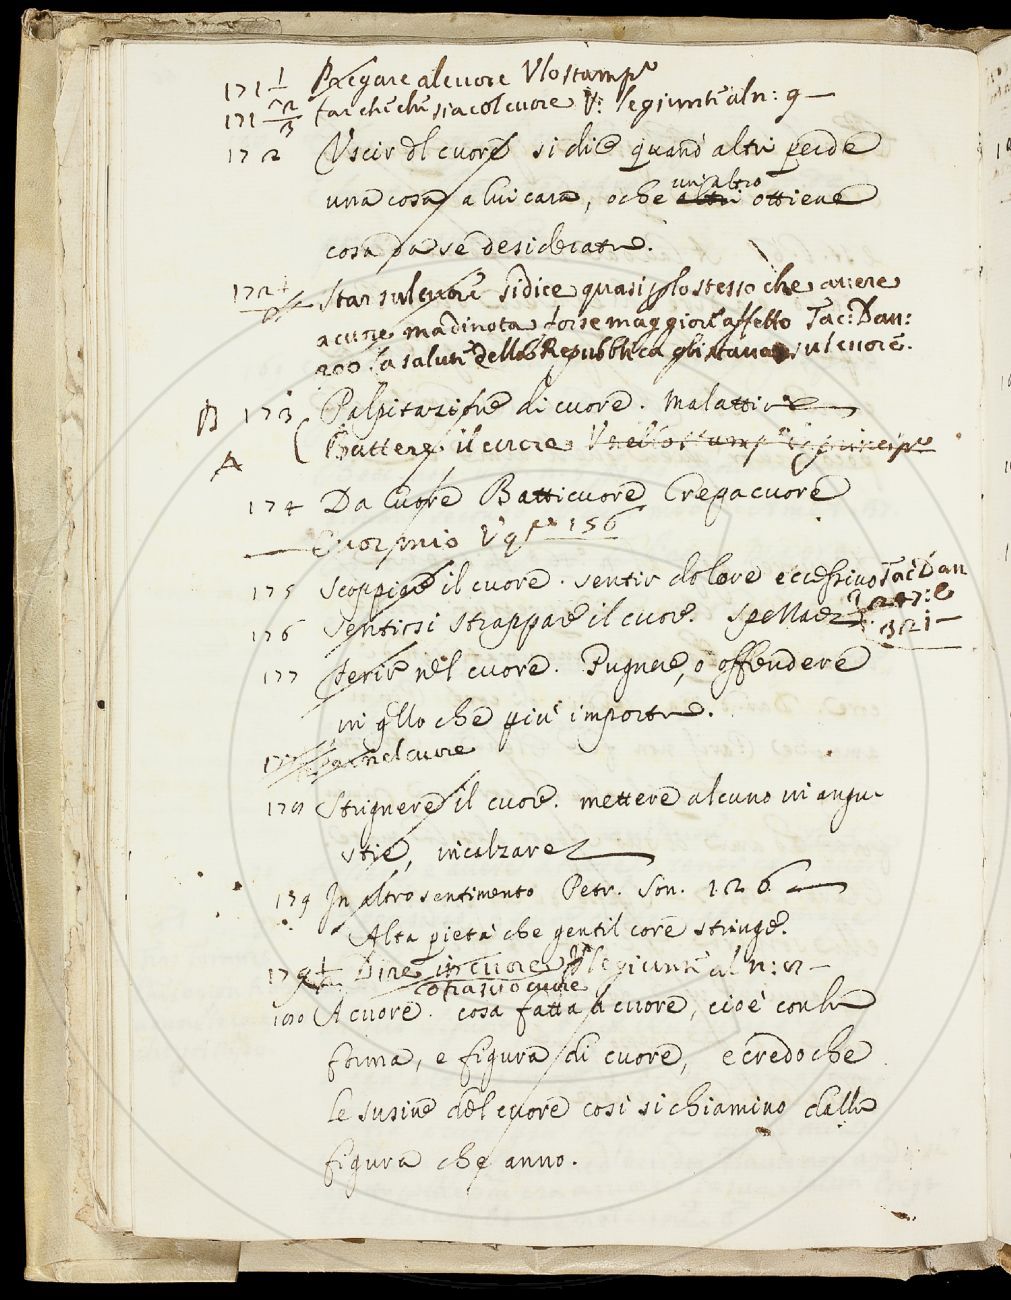 171 1/2 Pregare al cuore V lo stamp.o
171 2/3 far che che sia col cuore V: le giunte al n: 9
172 Uscir del cuore si dice quando altri perde
una cosa a lui cara, o che altri un altro ottiene
cosa da se desiderata.
172 Star sul cuore si dice quasi lo stesso che avere
a cuore ma dinota forse maggiore affetto Tac: Dan:
200. la salute della Repubblica gli stava sul cuore.
B 173 Palpitazione di cuore. Malattia
A Battere il cuore V nello stamp.o
174 Da Cuore Batticuore Crepacuore
156
175 Scoppiare il cuore. sentir dolore eccessivo Tac Dan
247: e
176 Sentirsi strappare il cuore.
321
177 Ferire nel cuore. Pugnere, o offendere
in qllo che piu importa.
nel cuore
178 Strignere il cuore. mettere alcuno in angu-
stie, incalzare
179 In altro sentimento Petr. Son. 126
Alta pietà che gentil core stringe.
179 1/2 Dire in cuore le giunte al n:
cuore
180 A cuore. cosa fatta a cuore, cioè con la
forma, e figura di cuore, e credo che
le susine del cuore così si chiamino dalla
figura che anno.